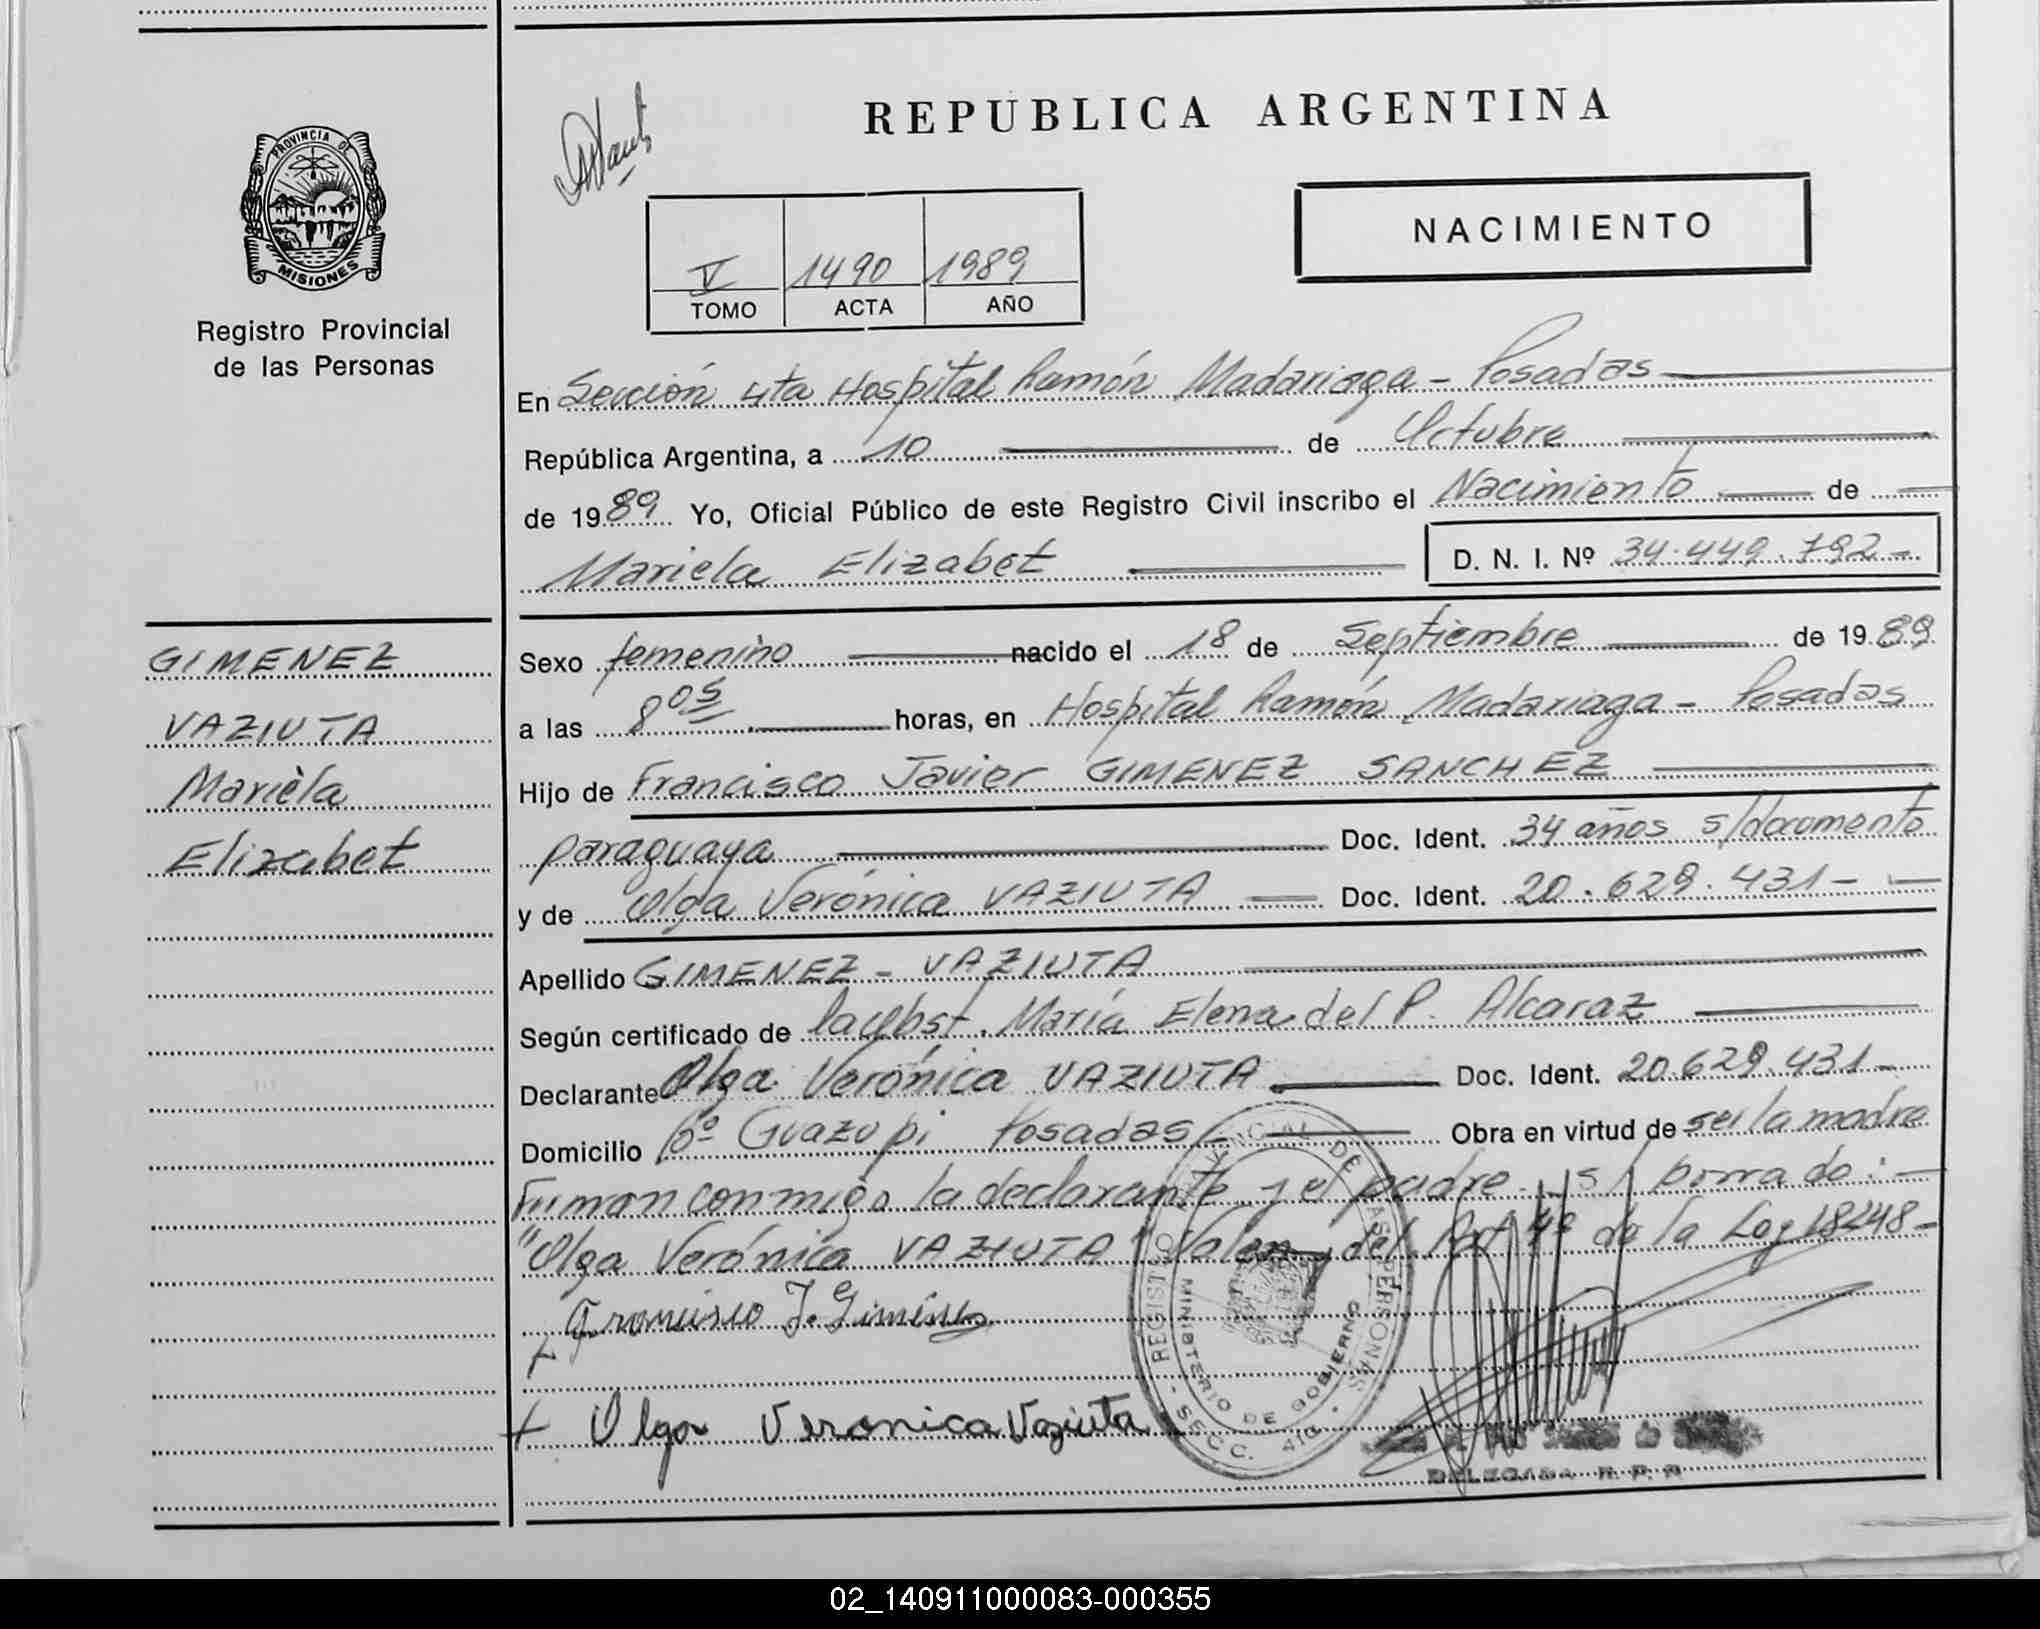 PROVINCIA DE
MISIONES
Registro Provincial
de las Personas
GIMENEZ
VAZIUTA
Mariela
Elizabet
REPUBLICA ARGENTINA
NACIMIENTO
V 1490 1989
TOMO ACTA AÑO
En Sección 4ta Hospital Ramón Madariaga - Posadas
República Argentina, a 10 de Octubre
de 1989 Yo, Oficial Público de este Registro Civil inscribo el Nacimiento de
Mariela Elizabet D. N. I. Nº 34.449.792-
Sexo femenino nacido el 18 de Septiembre de 1989
a las 8 05 horas, en Hospital Ramón Madariaga - Posadas
Hijo de Francisco Javier GIMENEZ SANCHEZ
paraguaya Doc. Ident. 34 años s/documento
y de Olga Verónica VAZIUTA Doc. Ident. 20.629.431-
Apellido GIMENEZ - VAZIUTA
Según certificado de María Elena del P. Alcaraz
Declarante Olga Verónica VAZIUTA Doc. Ident. 20.629.431-
Domicilio Bº Guazupi Posadas - Obra en virtud de ser la madre
Firman conmigo la declarante y el padre. s/ borrado:
"Olga Verónica VAZIUTA" Valen, del Art 4º de la Ley 18248-
Francisco J. Giménez
Olga Veronica Vaziuta
REGISTRO PROVINCIAL DE LAS PERSONAS
MINISTERIO DE GOBIERNO
- SECC. 4ta -
DELEGADA R. P. P.
02_140911000083-000355